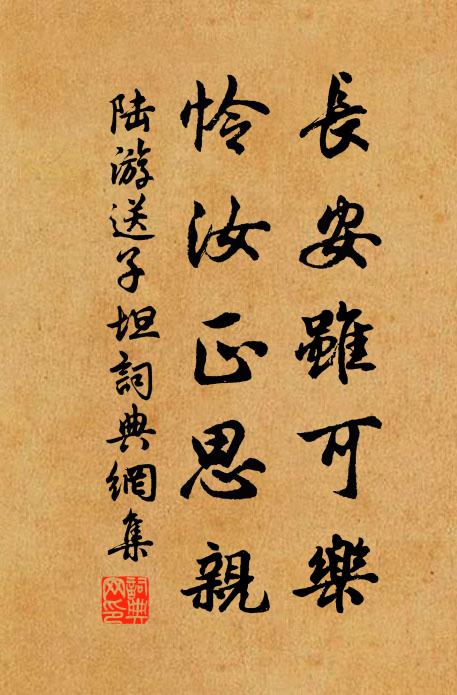 長安雖可樂
憐汝正思親
陸游送子坦詞典網集
詞典網印